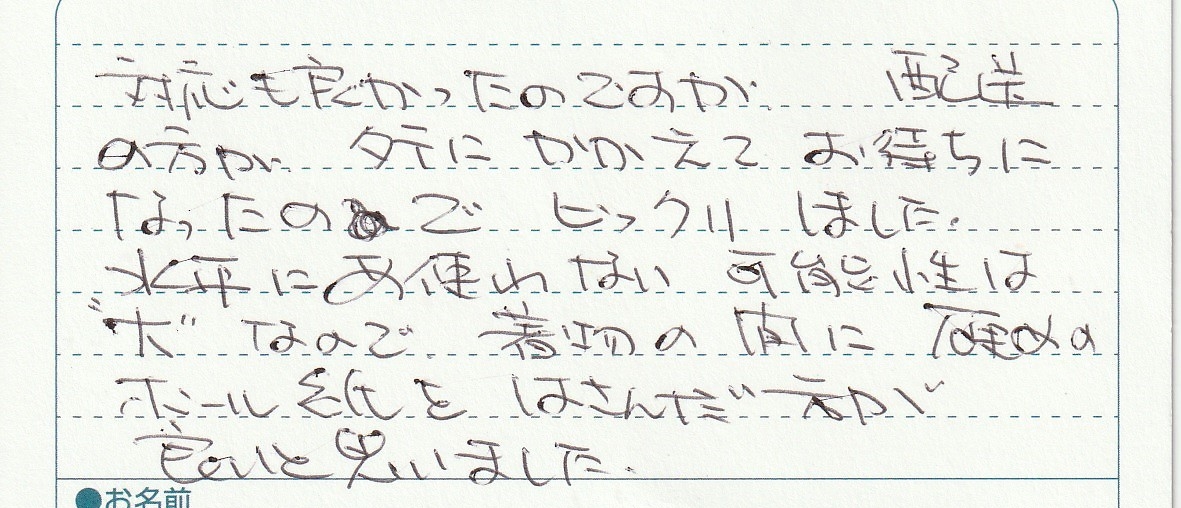 対応も良かったのですが 配送
の方が 夕方に かかえて お待ちに
なったので ビックリ しました.
水平にお使われない 可能性は
"大" なので 着物の間に 硬めの
ボール紙を はさんだ 方が
良いと思いました.
●お名前